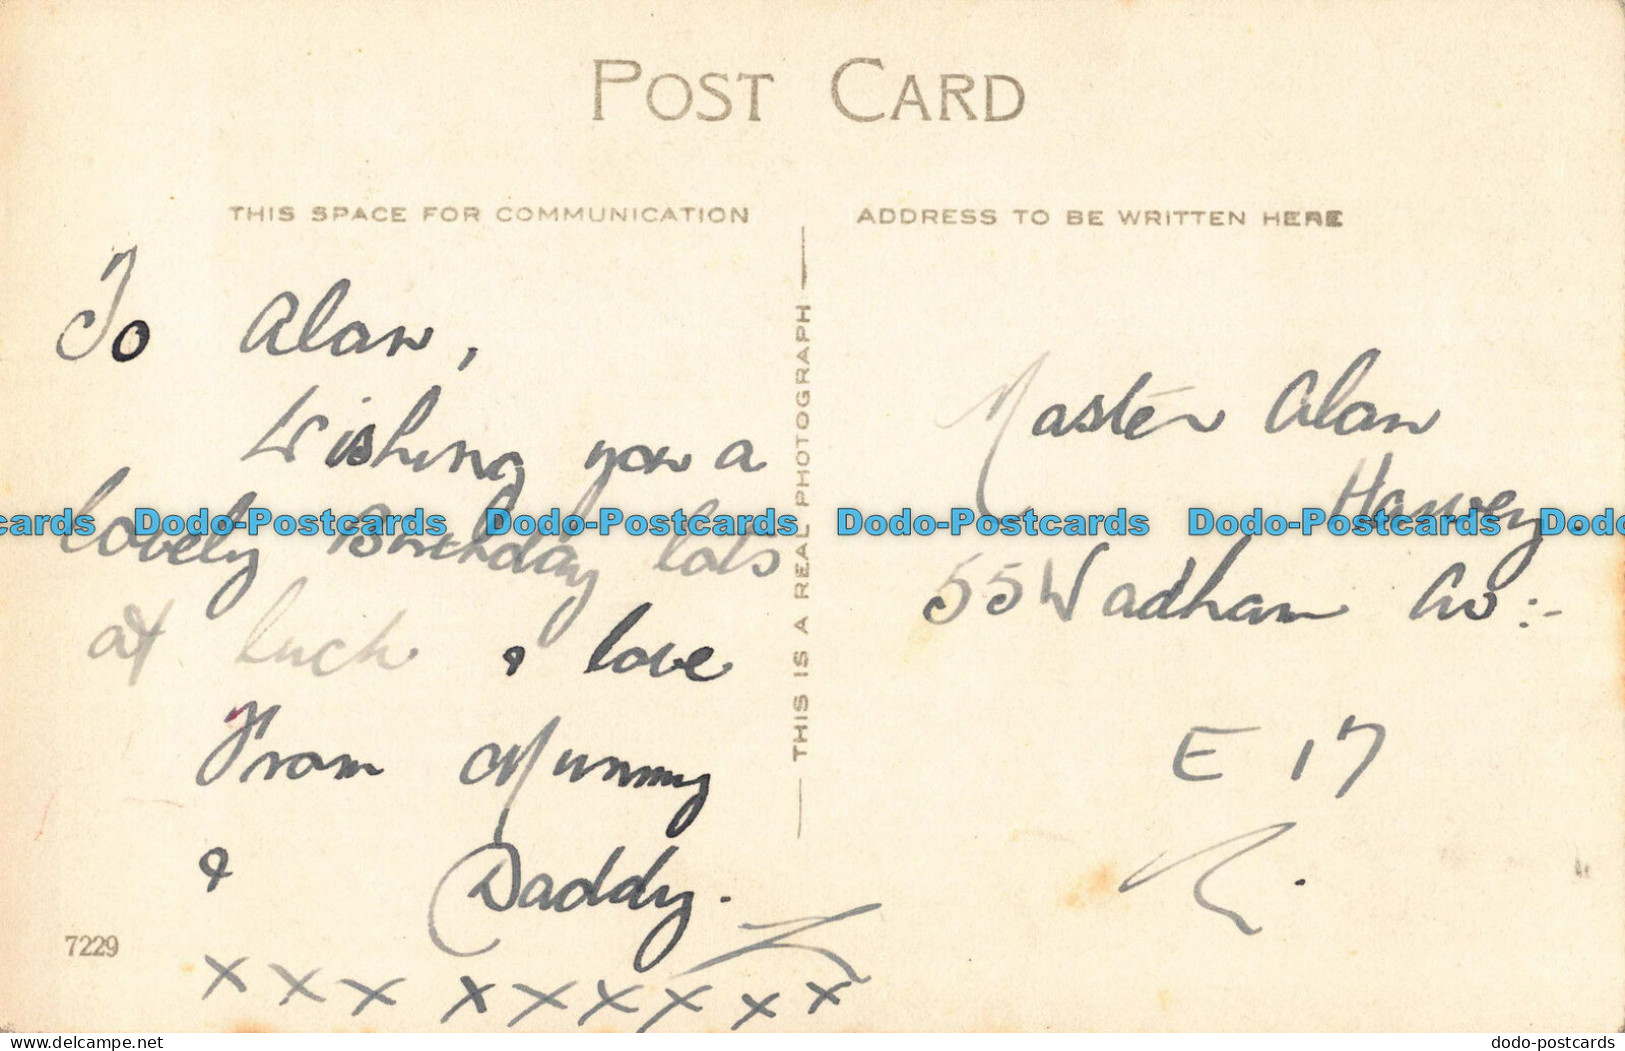 POST CARD
THIS SPACE FOR COMMUNICATION
ADDRESS TO BE WRITTEN HERE
To Alan,
Wishing you a
lovely Birthday lots
of luck & love
From Mummy
& Daddy.
x x x x x x x x x
7229
THIS IS A REAL PHOTOGRAPH
Master Alan
Harvey.
55 Wadham Av:-
E 17
cards Dodo-Postcards Dodo-Postcards Dodo-Postcards Dodo-Postcards Dodo
www.delcampe.net
dodo-postcards